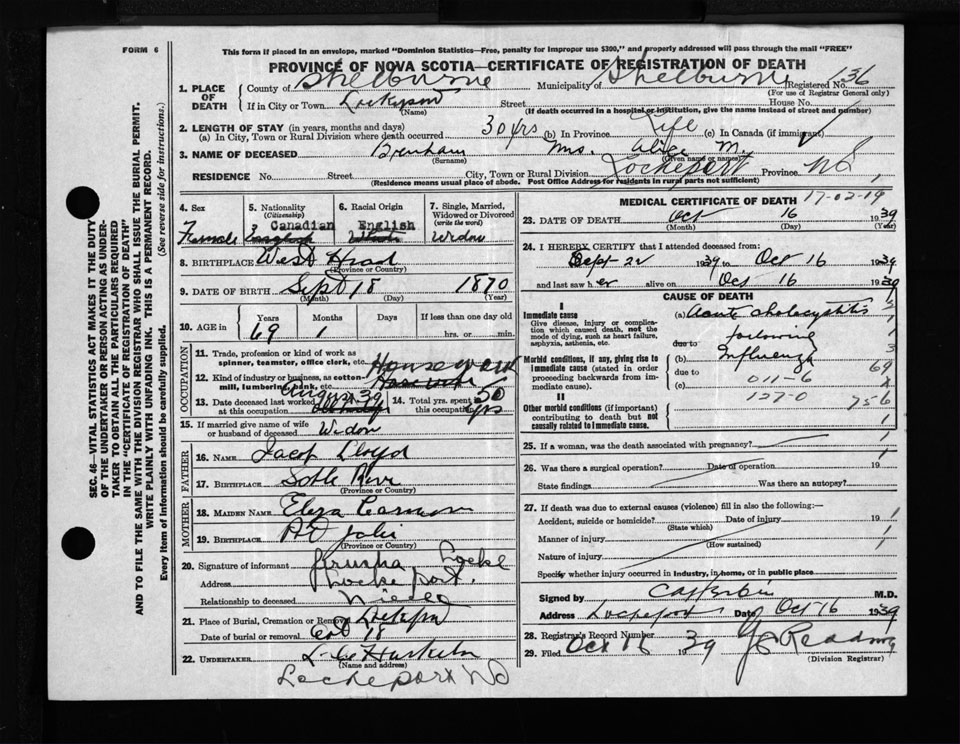 FORM 6
This form if placed in an envelope, marked "Dominion Statistics—Free, penalty for improper use $300," and properly addressed will pass through the mail "FREE"
PROVINCE OF NOVA SCOTIA—CERTIFICATE OF REGISTRATION OF DEATH
1. PLACE OF DEATH County of Shelburne Municipality of Shelburne Registered No. 136
(For use of Registrar General only)
If in City or Town Lockeport Street House No.
(Name) (If death occurred in a hospital or institution, give the name instead of street and number)
2. LENGTH OF STAY (in years, months and days)
(a) In City, Town or Rural Division where death occurred 30 yrs (b) In Province Life (c) In Canada (if immigrant)
3. NAME OF DECEASED Brenham Mrs. Alice M.
(Surname) (Given name or names)
RESIDENCE No. Street City, Town or Rural Division Lockeport Province NS
(Residence means usual place of abode. Post Office Address for residents in rural parts not sufficient)
4. Sex 5. Nationality (Citizenship) 6. Racial Origin 7. Single, Married, Widowed or Divorced (write the word)
Female Canadian English Widow
8. BIRTHPLACE West Head
(Province or Country)
9. DATE OF BIRTH Sept 18 1870
(Month) (Day) (Year)
10. AGE in Years Months Days If less than one day old
69 1 hrs. or min.
OCCUPATION
11. Trade, profession or kind of work as spinner, teamster, office clerk, etc. Housework
12. Kind of industry or business, as cotton-mill, lumbering, bank, etc.
13. Date deceased last worked at this occupation August 39 14. Total yrs. spent in this occupation 50 yrs
15. If married give name of wife or husband of deceased Widow
FATHER
16. NAME Jacop Lloyd
17. BIRTHPLACE
(Province or Country)
MOTHER
18. MAIDEN NAME
19. BIRTHPLACE Pt Jolie
(Province or Country)
20. Signature of informant Jerusha Locke
Address Lockeport.
Relationship to deceased Niece
21. Place of Burial, Cremation or Removal Lockeport
Date of burial or removal Oct 18
22. UNDERTAKER
(Name and address)
Lockeport NS
MEDICAL CERTIFICATE OF DEATH 17-02-19
23. DATE OF DEATH Oct 16 1939
(Month) (Day) (Year)
24. I HEREBY CERTIFY that I attended deceased from:
Sept 22 1939 to Oct 16 1939
and last saw her alive on Oct 16 1939
CAUSE OF DEATH
I
Immediate cause
Give disease, injury or complication which caused death, not the mode of dying, such as heart failure, asphyxia, asthenia, etc.
(a) Acute cholecystitis
due to following
Morbid conditions, if any, giving rise to immediate cause (stated in order proceeding backwards from immediate cause).
(b) Influenza
due to 011-6
(c)
127-0
756
II
Other morbid conditions (if important) contributing to death but not causally related to immediate cause.
25. If a woman, was the death associated with pregnancy?
26. Was there a surgical operation? Date of operation 19
State findings Was there an autopsy?
27. If death was due to external causes (violence) fill in also the following:—
Accident, suicide or homicide? Date of injury 19
(State which)
Manner of injury
(How sustained)
Nature of injury
Specify whether injury occurred in industry, in home, or in public place
Signed by M.D.
Address Lockeport Date Oct 16 1939
28. Registrar's Record Number
29. Filed Oct 16 1939
(Division Registrar)
SEC. 46—VITAL STATISTICS ACT MAKES IT THE DUTY
OF THE UNDERTAKER OR PERSON ACTING AS UNDER-
TAKER TO OBTAIN ALL THE PARTICULARS REQUIRED
IN THE "CERTIFICATE OF REGISTRATION OF DEATH"
AND TO FILE THE SAME WITH THE DIVISION REGISTRAR WHO SHALL ISSUE THE BURIAL PERMIT.
WRITE PLAINLY WITH UNFADING INK. THIS IS A PERMANENT RECORD.
Every item of information should be carefully supplied. (See reverse side for instructions.)